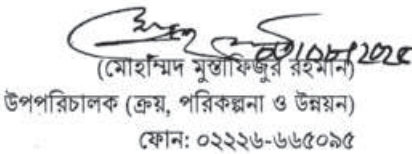 (মোহাম্মিদ মুস্তাফিজুর রহমান)
উপপরিচালক (ক্রয়, পরিকল্পনা ও উন্নয়ন)
ফোন: ০২২২৬-৬৬৫০৯৫